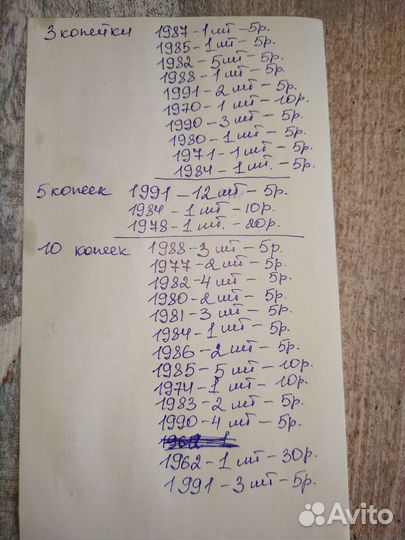 3 копейки 1987 - 1 шт - 5р.
1985 - 1 шт - 5р.
1982 - 5 шт - 5р.
1988 - 1 шт - 5р.
1991 - 2 шт - 5р.
1970 - 1 шт - 10р.
1990 - 3 шт - 5р.
1980 - 1 шт - 5р.
1971 - 1 шт - 5р.
1984 - 1 шт. - 5р.
5 копеек 1991 - 12 шт - 5р.
1984 - 1 шт - 10р.
1978 - 1 шт. - 20р.
10 копеек 1988 - 3 шт - 5р.
1977 - 2 шт - 5р.
1982 - 4 шт - 5р.
1980 - 2 шт - 5р.
1981 - 3 шт - 5р.
1984 - 1 шт - 5р.
1986 - 2 шт - 5р.
1985 - 5 шт - 10р.
1974 - 1 шт - 10р.
1983 - 2 шт - 5р.
1990 - 4 шт - 5р.
1962 - 1 шт - 30р.
1991 - 3 шт - 5р.
Avito